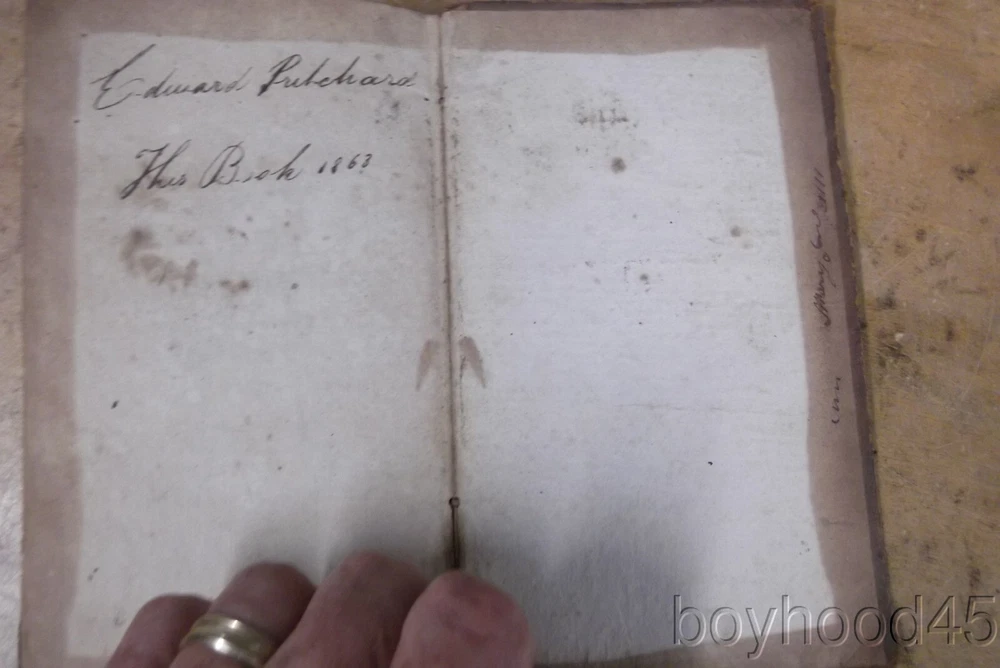 Edward Pritchard
This Book 1863
boyhood45